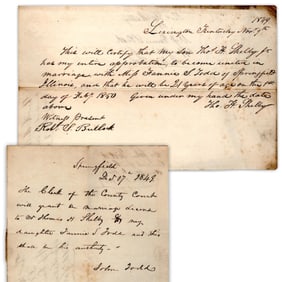 1849
Lexington Kentucky Nov. 9th
This will Certify that my Son Thos. H. Shelby Jr
has my entire approbation, to become united in
marriage with Miss Fannie S. Todd of Springfield
Illinois, and that he will be 21 years of age on the
day of Feby. 1850 Given under my hand the date
above Tho. H. Shelby
Witness Present
Robt. S. Bullock
Springfield
Dec 17th 1849
The Clerk of the County Court
will grant a marriage license
to Mr Thomas H Shelby & my
daughter Fannie S Todd and this
shall be his authority.
John Todd